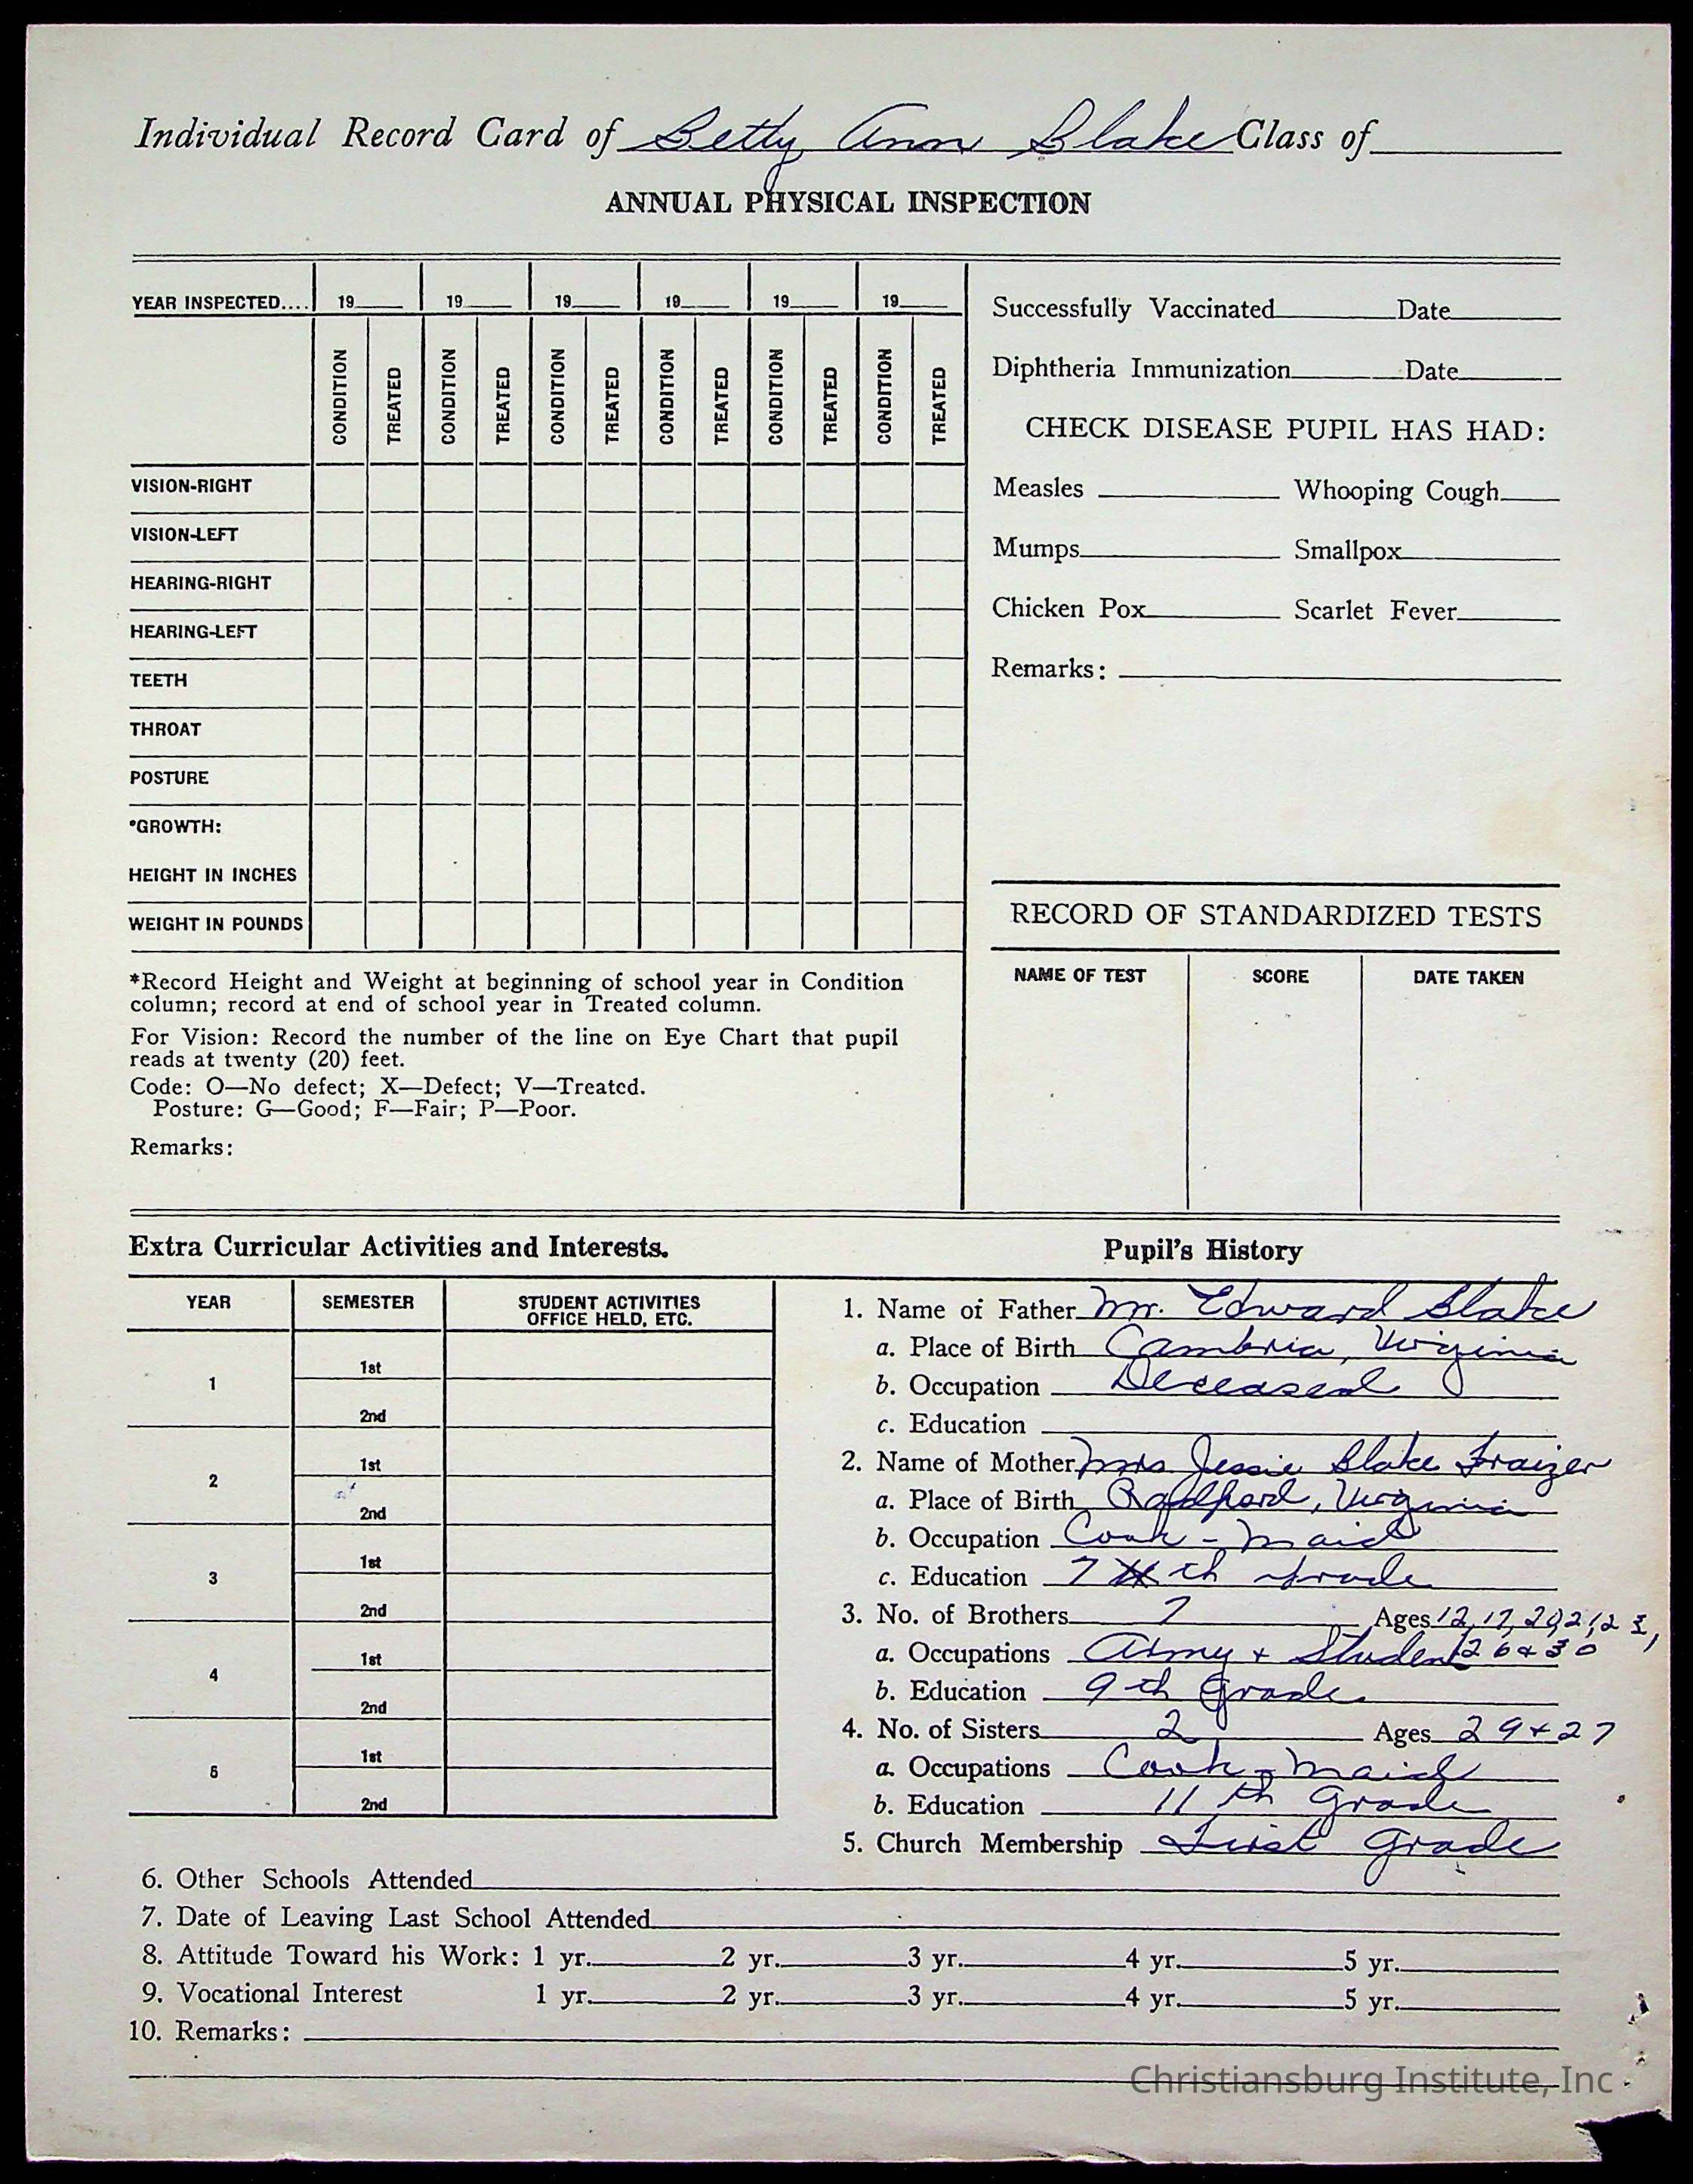 Individual Record Card of Betty Ann Blake Class of
ANNUAL PHYSICAL INSPECTION
YEAR INSPECTED.... 19 19 19 19 19 19
CONDITION TREATED CONDITION TREATED CONDITION TREATED CONDITION TREATED CONDITION TREATED CONDITION TREATED
VISION-RIGHT
VISION-LEFT
HEARING-RIGHT
HEARING-LEFT
TEETH
THROAT
POSTURE
*GROWTH:
HEIGHT IN INCHES
WEIGHT IN POUNDS
*Record Height and Weight at beginning of school year in Condition
column; record at end of school year in Treated column.
For Vision: Record the number of the line on Eye Chart that pupil
reads at twenty (20) feet.
Code: O—No defect; X—Defect; V—Treated.
Posture: G—Good; F—Fair; P—Poor.
Remarks:
Successfully Vaccinated Date
Diphtheria Immunization Date
CHECK DISEASE PUPIL HAS HAD:
Measles Whooping Cough
Mumps Smallpox
Chicken Pox Scarlet Fever
Remarks:
RECORD OF STANDARDIZED TESTS
NAME OF TEST SCORE DATE TAKEN
Extra Curricular Activities and Interests.
YEAR SEMESTER STUDENT ACTIVITIES
OFFICE HELD, ETC.
1 1st
2nd
2 1st
2nd
3 1st
2nd
4 1st
2nd
5 1st
2nd
Pupil's History
1. Name of Father Mr. Edward Blake
a. Place of Birth Cambria, Virginia
b. Occupation Deceased
c. Education
2. Name of Mother Mrs Jessie Blake Fraizer
a. Place of Birth Radford, Virginia
b. Occupation Cook - Maid
c. Education 7 th grade
3. No. of Brothers 7 Ages 12, 17, 20, 21, 23,
a. Occupations Army + Student 26 & 30
b. Education 9th Grade
4. No. of Sisters 2 Ages 29 + 27
a. Occupations Cook - Maid
b. Education 11 th Grade
5. Church Membership First Grade
6. Other Schools Attended
7. Date of Leaving Last School Attended
8. Attitude Toward his Work: 1 yr. 2 yr. 3 yr. 4 yr. 5 yr.
9. Vocational Interest 1 yr. 2 yr. 3 yr. 4 yr. 5 yr.
10. Remarks:
Christiansburg Institute, Inc